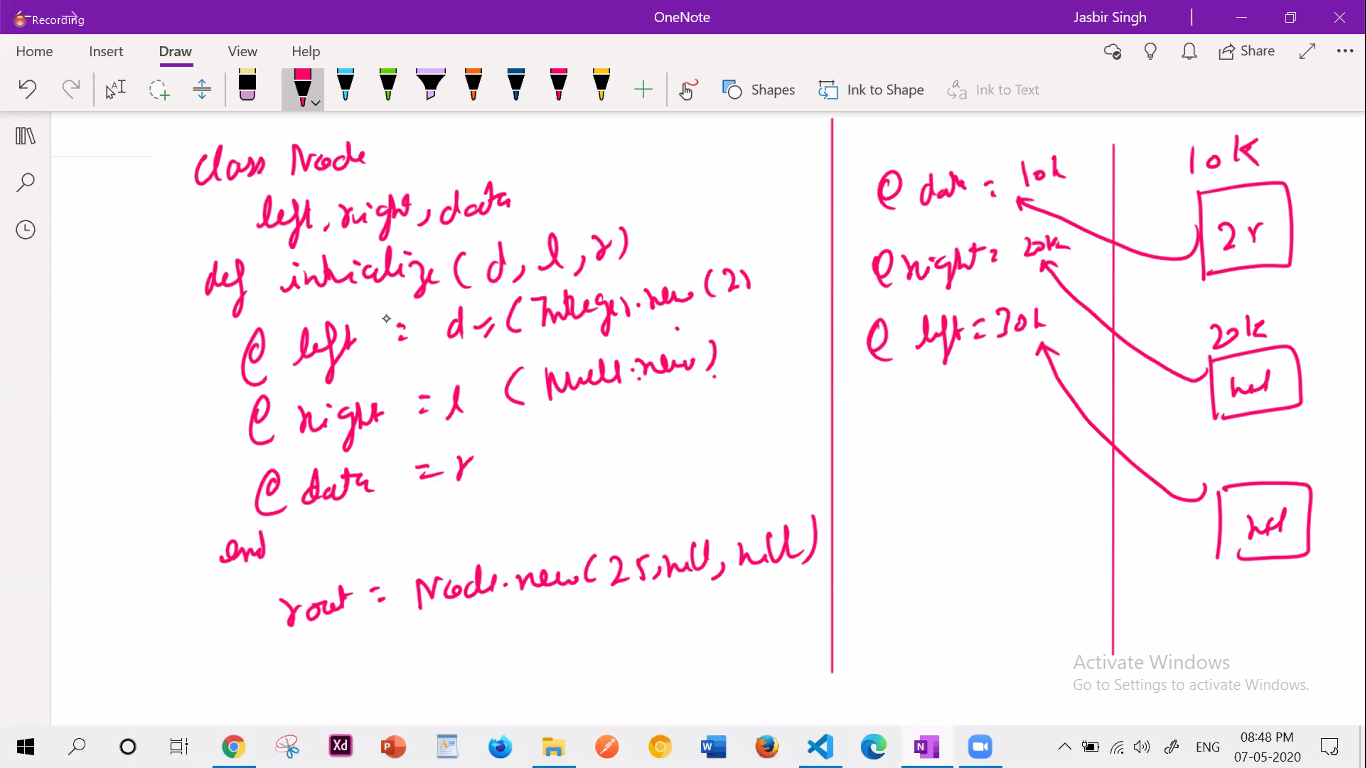 Recording
OneNote
Jasbir Singh
Home Insert Draw View Help
Share
Shapes
Ink to Shape
Ink to Text
class Node
left, right, data
def initialize (d, l, r)
@ left = d (Integer.new (2)
@ right = l (Null.new)
@ data = r
end
root = Node.new (25, null, null)
@ data = 10k
@ right = 20k
@ left = 30k
10K
25
20K
null
null
Activate Windows
Go to Settings to activate Windows.
Xd
ENG
08:48 PM
07-05-2020